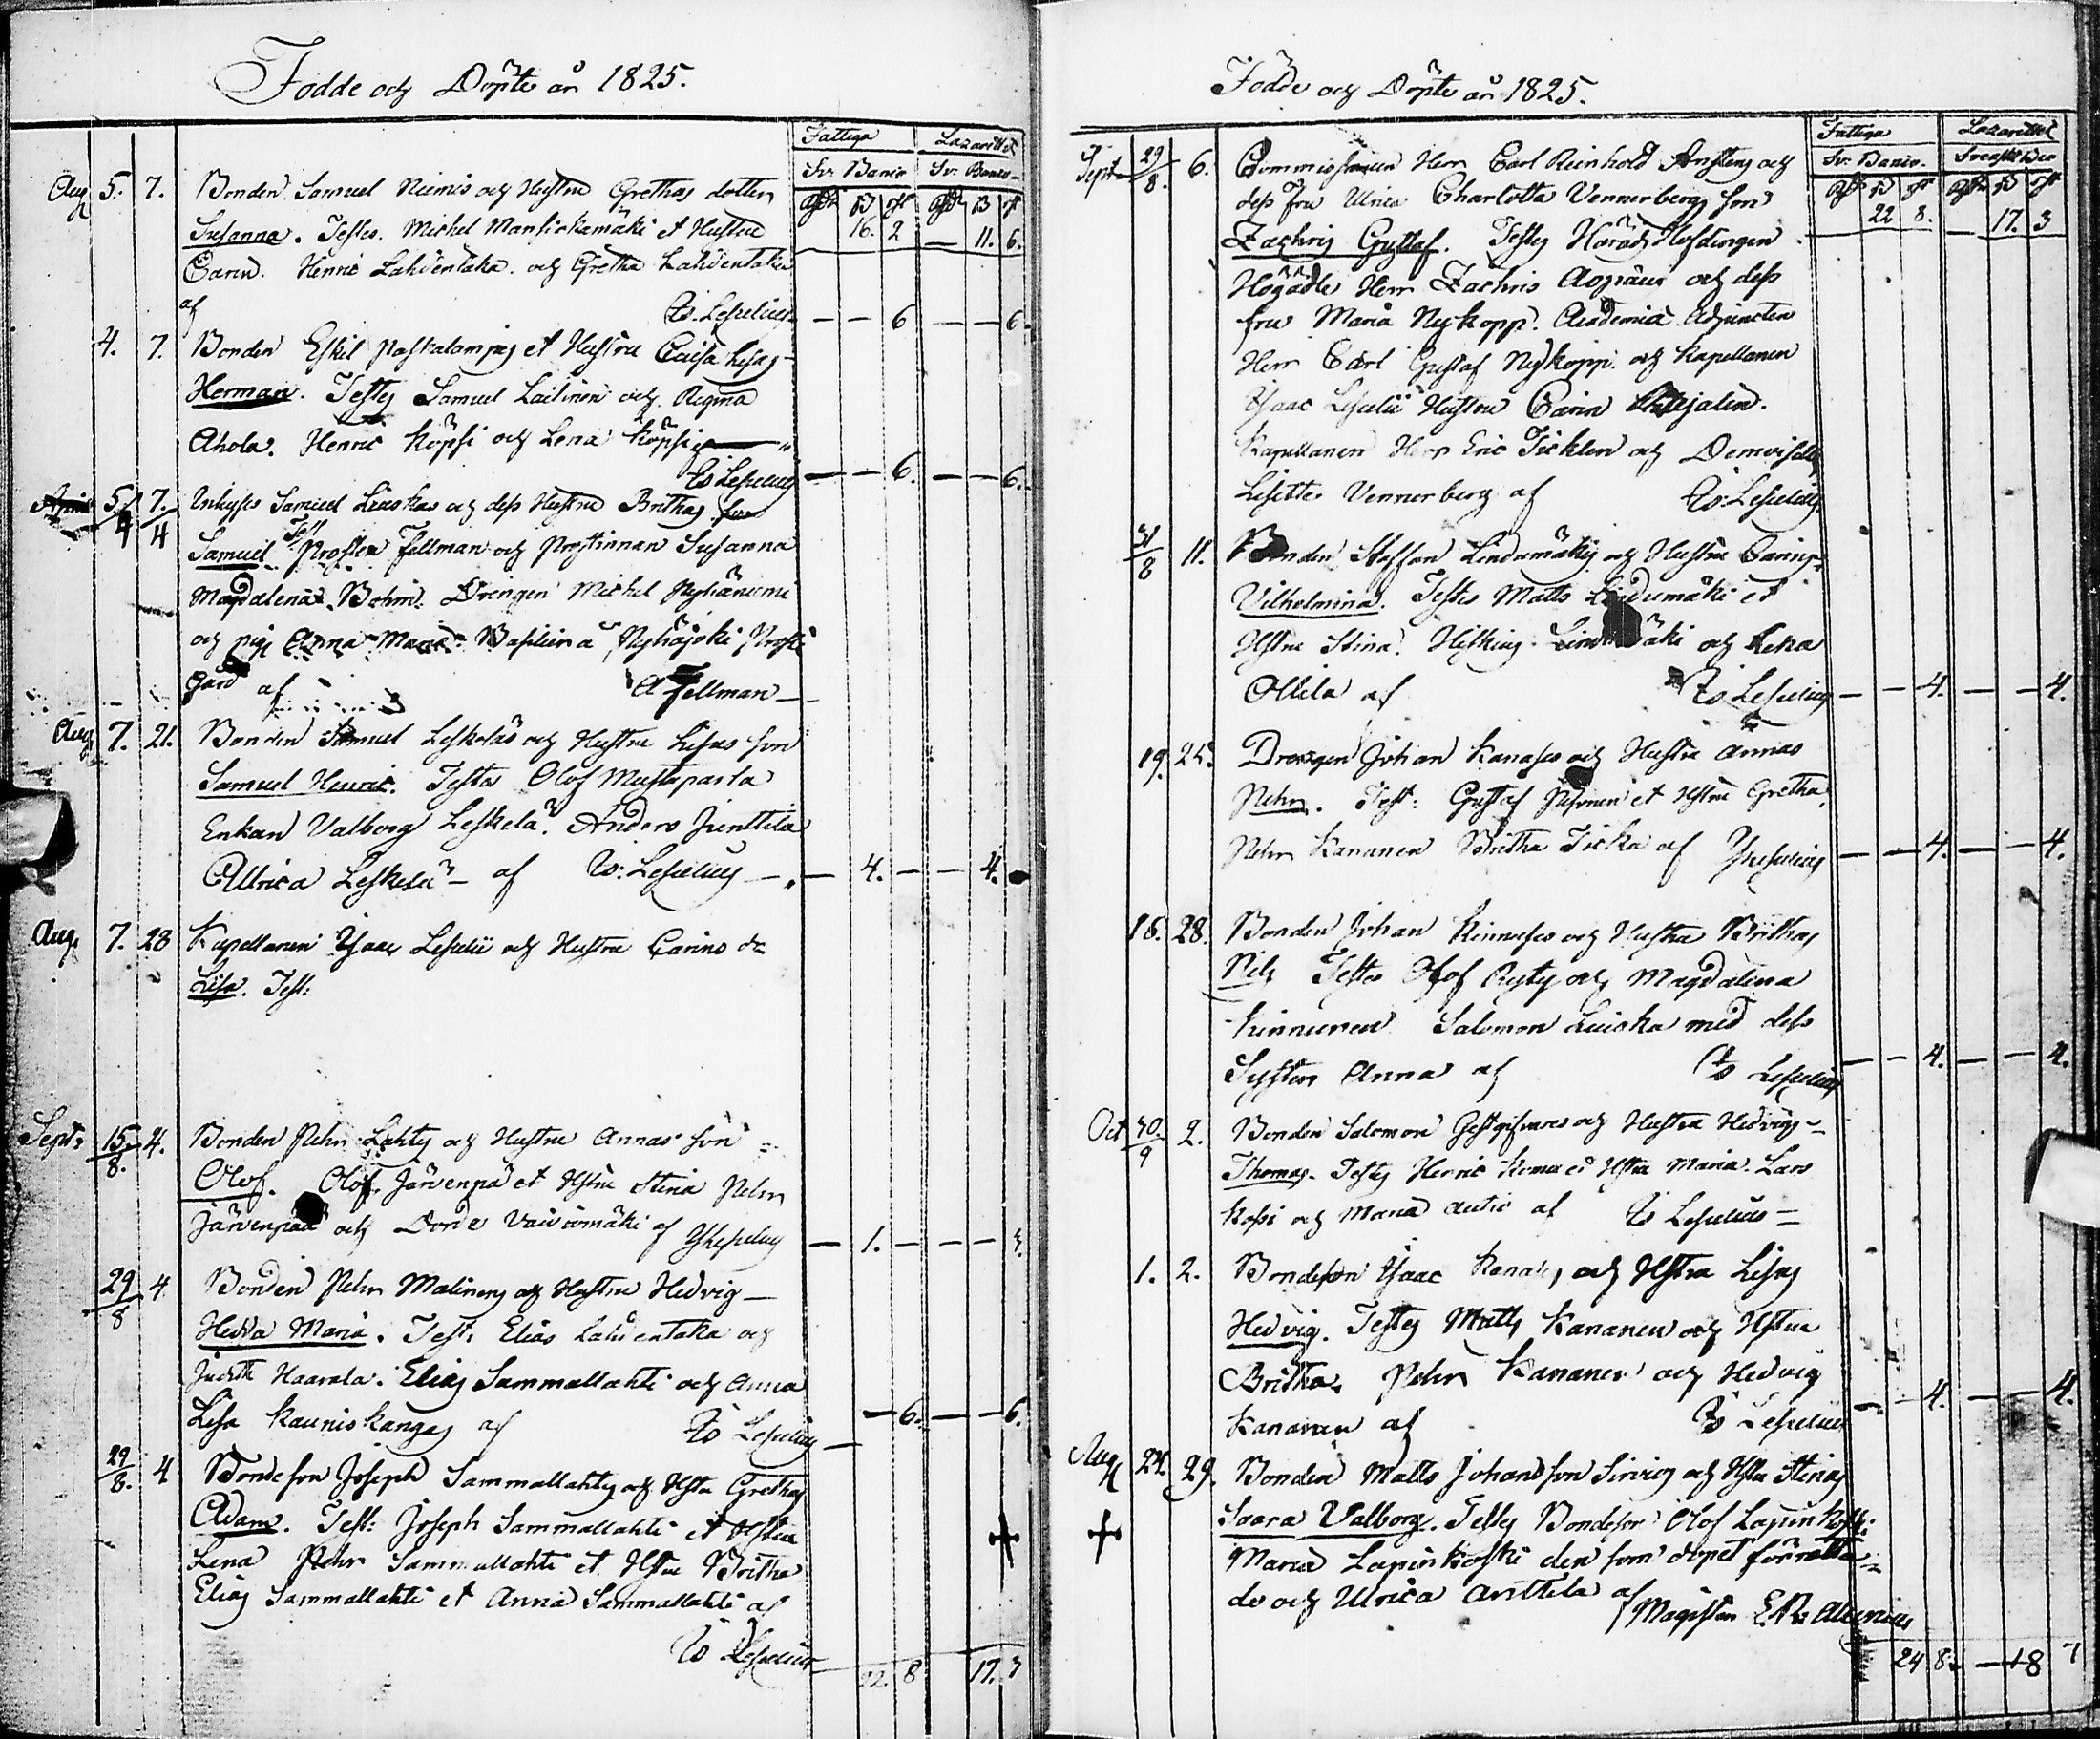 Födde och Döpte år 1825.
Fattiga Lazarettet
Sv. Banco Sv: Banco
16. 2 — 11. 6.
Aug 5. 7. Bonden Samuel Niemis och Hustru Grethas dotter
Susanna. Testes. Michel Mansickamäki et Hustru
Carin. Henric Lahdentaka och Gretha Lahdentaka
af Is. Lespelius — — 6 — — 6.
4. 7. Bonden Eskil Paskalampis et Hustru Caisa Lisas
Herman. Testes Samuel Laitinen och Regina
Ahola. Henric Köpsi och Lena Köpsi
Is Lespelius — — 6. — — 6.
April 5/4 7/4 Samuel Liuskas och dess Hustru Brithas son
Samuel Test Prosten Fellman och Prostinnan Susanna
Magdalena Bohm. Drengen Michel Nyhäniemi
och pig Anna Maria Nyhäjoki Prosti
gård af A Fellman —
Aug 7. 21. Bonden Samuel Leskeläs och Hustru Lisas son
Samuel Henric. Testes Olof Mustaparta
Enkan Valborg Leskelä. Anders Junttila
Ullrica Leskelä — af Is: Lespelius — — 4. — — 4.
Aug. 7. 28 Kapellanen Isaac Lespelii och Hustru Carins dr
Lisa. Test:
Sept: 15/8. 4. Bonden Pehr Lahtis och Hustru Annas son
Olof. Olof Järvenpä et Hstru Stina Pehr
Järvenpää och Vaiviomäki af Is Lespelius — 1. — — — 3.
29/8 4. Bonden Pehr Malinens och Hustru Hedvig —
Hedda Maria. Test. Elias Lahdentaka och
Judith Haarala. Elias Sammallahti och Anna
Lisa Kauniskangas af Is Lespelius — — 6. — — 6.
29/8. 4 Bondeson Joseph Sammallahtis och Hstu Grethas
Adam. Test: Joseph Sammallahti et Hstru
Lena Pehr Sammallahti et Hstru Britha
Elias Sammallahti et Anna Sammallahti af
Is Lespelius
22. 8 17. 3
Födde och Döpte år 1825.
Fattiga Lazarettet
Sv: Banco. Svenskt Bco
22 8. — 17. 3
Sept. 29/8. 6. Herr Carl Reinhold och
dess Fru Ulrica Charlotta Vennerbergs son
Zachris Gustaf. Testes Härads Höfdingen
Högädle Herr Zachris Aspraeus och dess
fru Maria Nykopp. Academia Adjuncten
Herr Carl Gustaf Nykopp. och Kapellanen
Isaac Lespelii Hustru Carin
Kapellanen Herr Eric Ticklen och Demoiselle
Lisette Vennerberg af Is. Lespelius
31/8 11. Bonden Staffan Lindumäkis och Hustru Carins
Vilhelmina. Testes Matts Lindumäki et
Hstru Stina. och Lena
Ollila af Is Lespelius — — 4. — — 4.
19. 25. Drengen Johan Kanases och Hustru Annas
Pehr. Test: Gustaf et Hstru Gretha,
Pehr Kananen Britha Ticka af Is Lespelius — — 4. — — 4.
16. 28. Bonden Johan Kinnuses och Hustru Brithas
Nils Testes Olof och Magdalena
Kinnunen Salomon Luiska med dess
Syster Anna af Is Lespelius — — 4. — — 4.
Oct 30./9 2. Bonden Salomon Gestgifvares och Hustru Hedvigs
Thomas. Testes Henric et Hstru Maria. Lars
och Maria Autio af Is Lespelius —
1. 2. Bondeson Isaac Kanases och Hstru Lisas
Hedvig. Testes Matts Kananen och Hstru
Britha. Pehr Kananen och Hedvig
Kananen af Is Lespelius — — 4. — — 4.
Aug 24. 29. Bonden Matts Johansson Sirviös och Hstu Stinas
Saara Valborg. Testes Bondeson Olof Lapinkoski
Maria Lapinkoski den som dopet förrätta-
de och Ulrica Anttila af Magister E.N: Alcenius
24 8. — 18 7